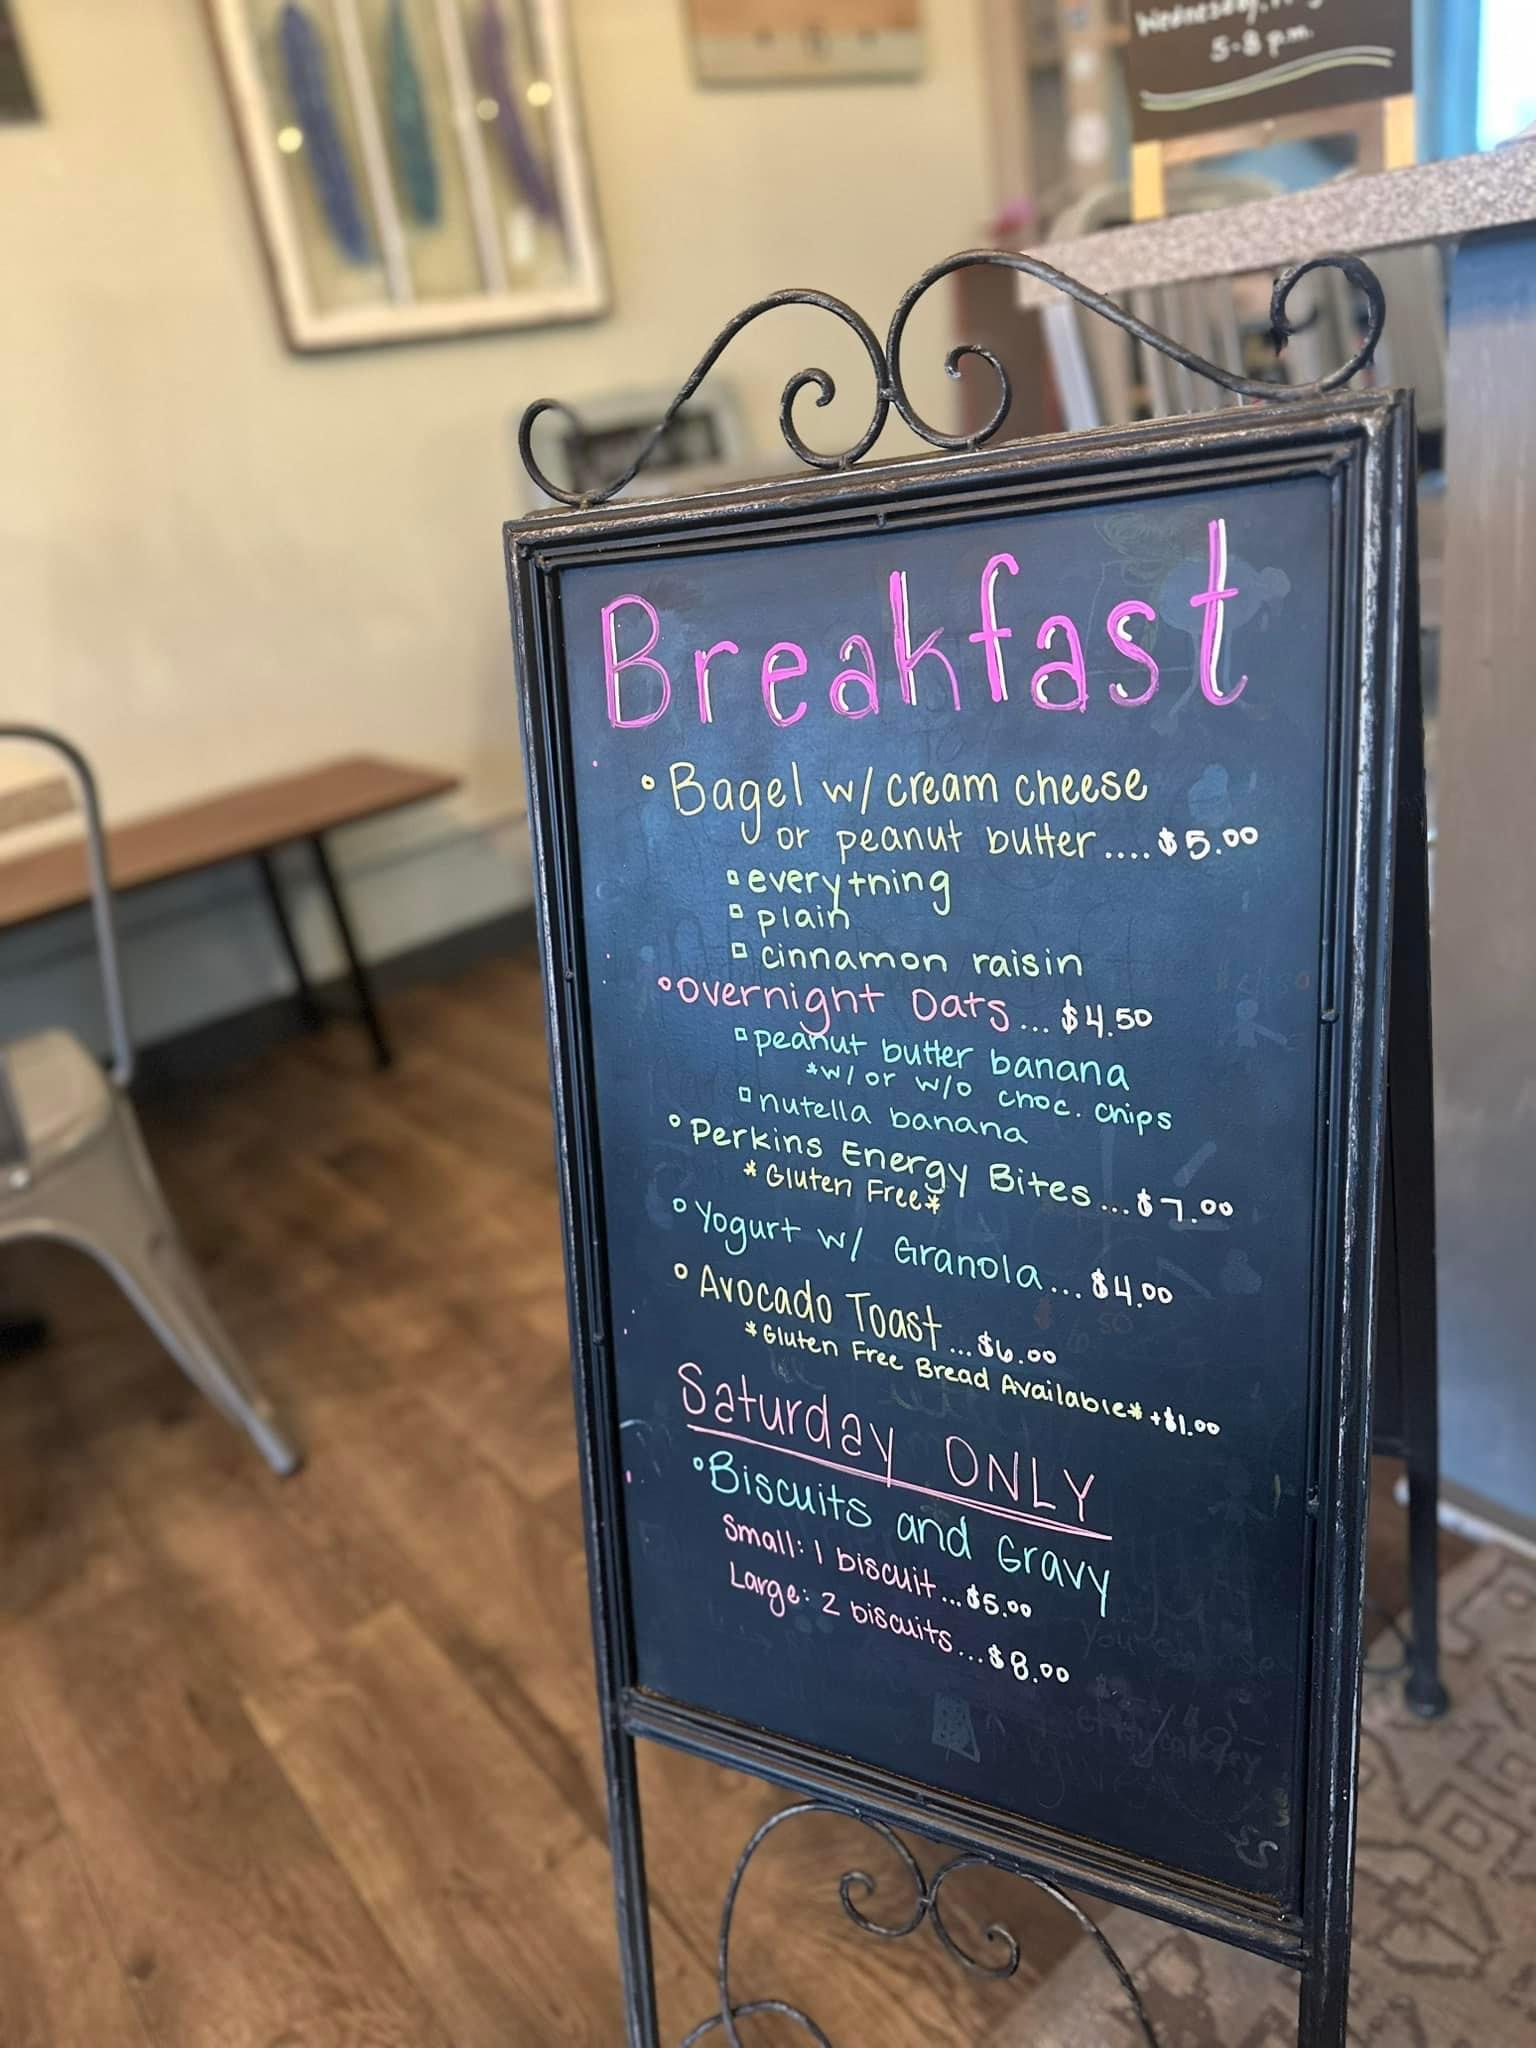 Wednesday,
5-8 p.m.
Breakfast
Bagel w/ cream cheese
or peanut butter....$5.00
everything
plain
cinnamon raisin
Overnight Oats...$4.50
peanut butter banana
*w/ or w/o choc. chips
nutella banana
Perkins Energy Bites...$7.00
*Gluten Free*
Yogurt w/ Granola...$4.00
Avocado Toast...$6.00
*Gluten Free Bread Available* +$1.00
Saturday ONLY
Biscuits and Gravy
Small: 1 biscuit...$5.00
Large: 2 biscuits...$8.00